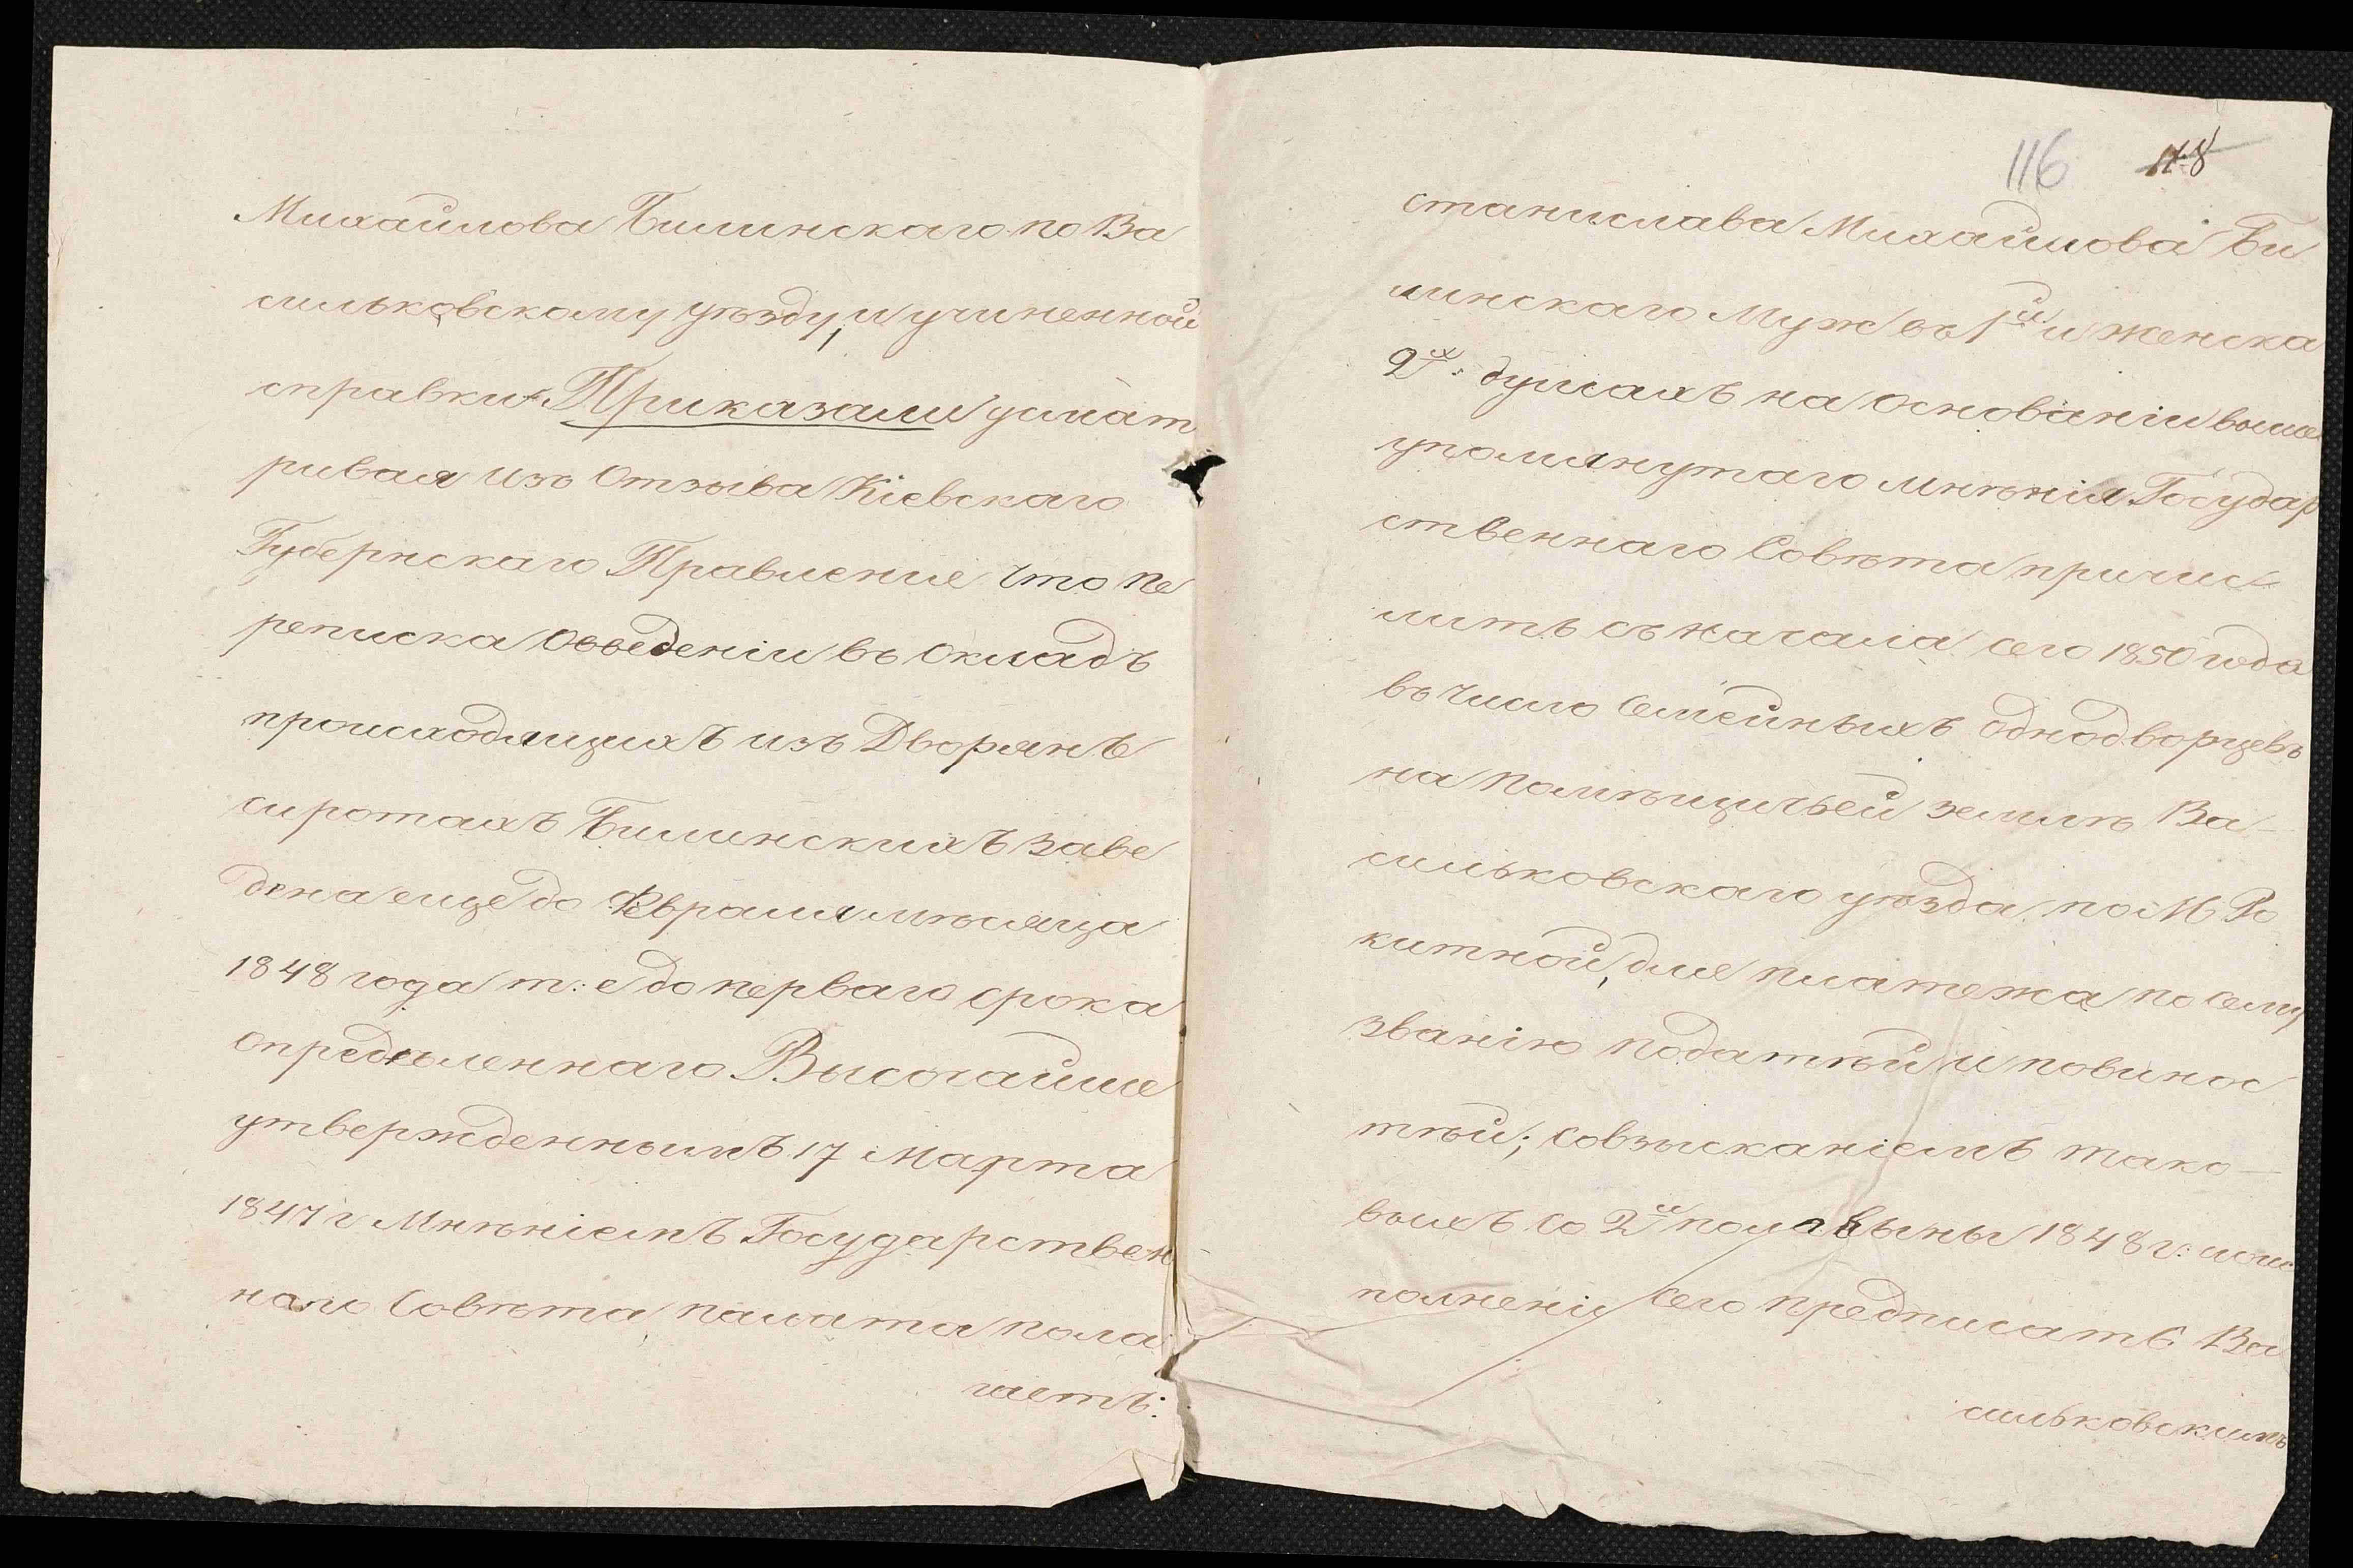 Михайлова Билинскаго по Ва
сильковскому уѣзду, и учиненной
справки. Приказали усмат
ривая изъ Отзыва Кіевскаго
Губернскаго Правленіе что пе
реписка Оввeдeніи въ Окладъ
происходящихъ изъ Дворянъ
сиротахъ Билинскихъ заве
дена еще до Февраля мѣсяца
1848 года т: е до перваго срока
опредѣленнаго Высочайше
утвержденнымъ 17 Марта
1847 г Мнѣніемъ Государствен
наго Совѣта, палата пола
гаетъ:
116 118
станислава Михайлова Би
линскаго Муж въ 1й и женска
2х: душахъ на Основаніи выше
упомянутаго мнѣнія Государ
ственнаго Совѣта причис
лить съ начала сего 1850 года
въ число Семейныхъ Однодворцевъ
на помѣщичьей землѣ Ва-
сильковскаго уѣзда, по М. Ро
китной, для платежа по сему
званію податѣй и повинос
тѣй; совзысканіемъ тако-
выхъ со 2й половыны 1848 г:
полненіи сего предписать Ва
сильковскимъ